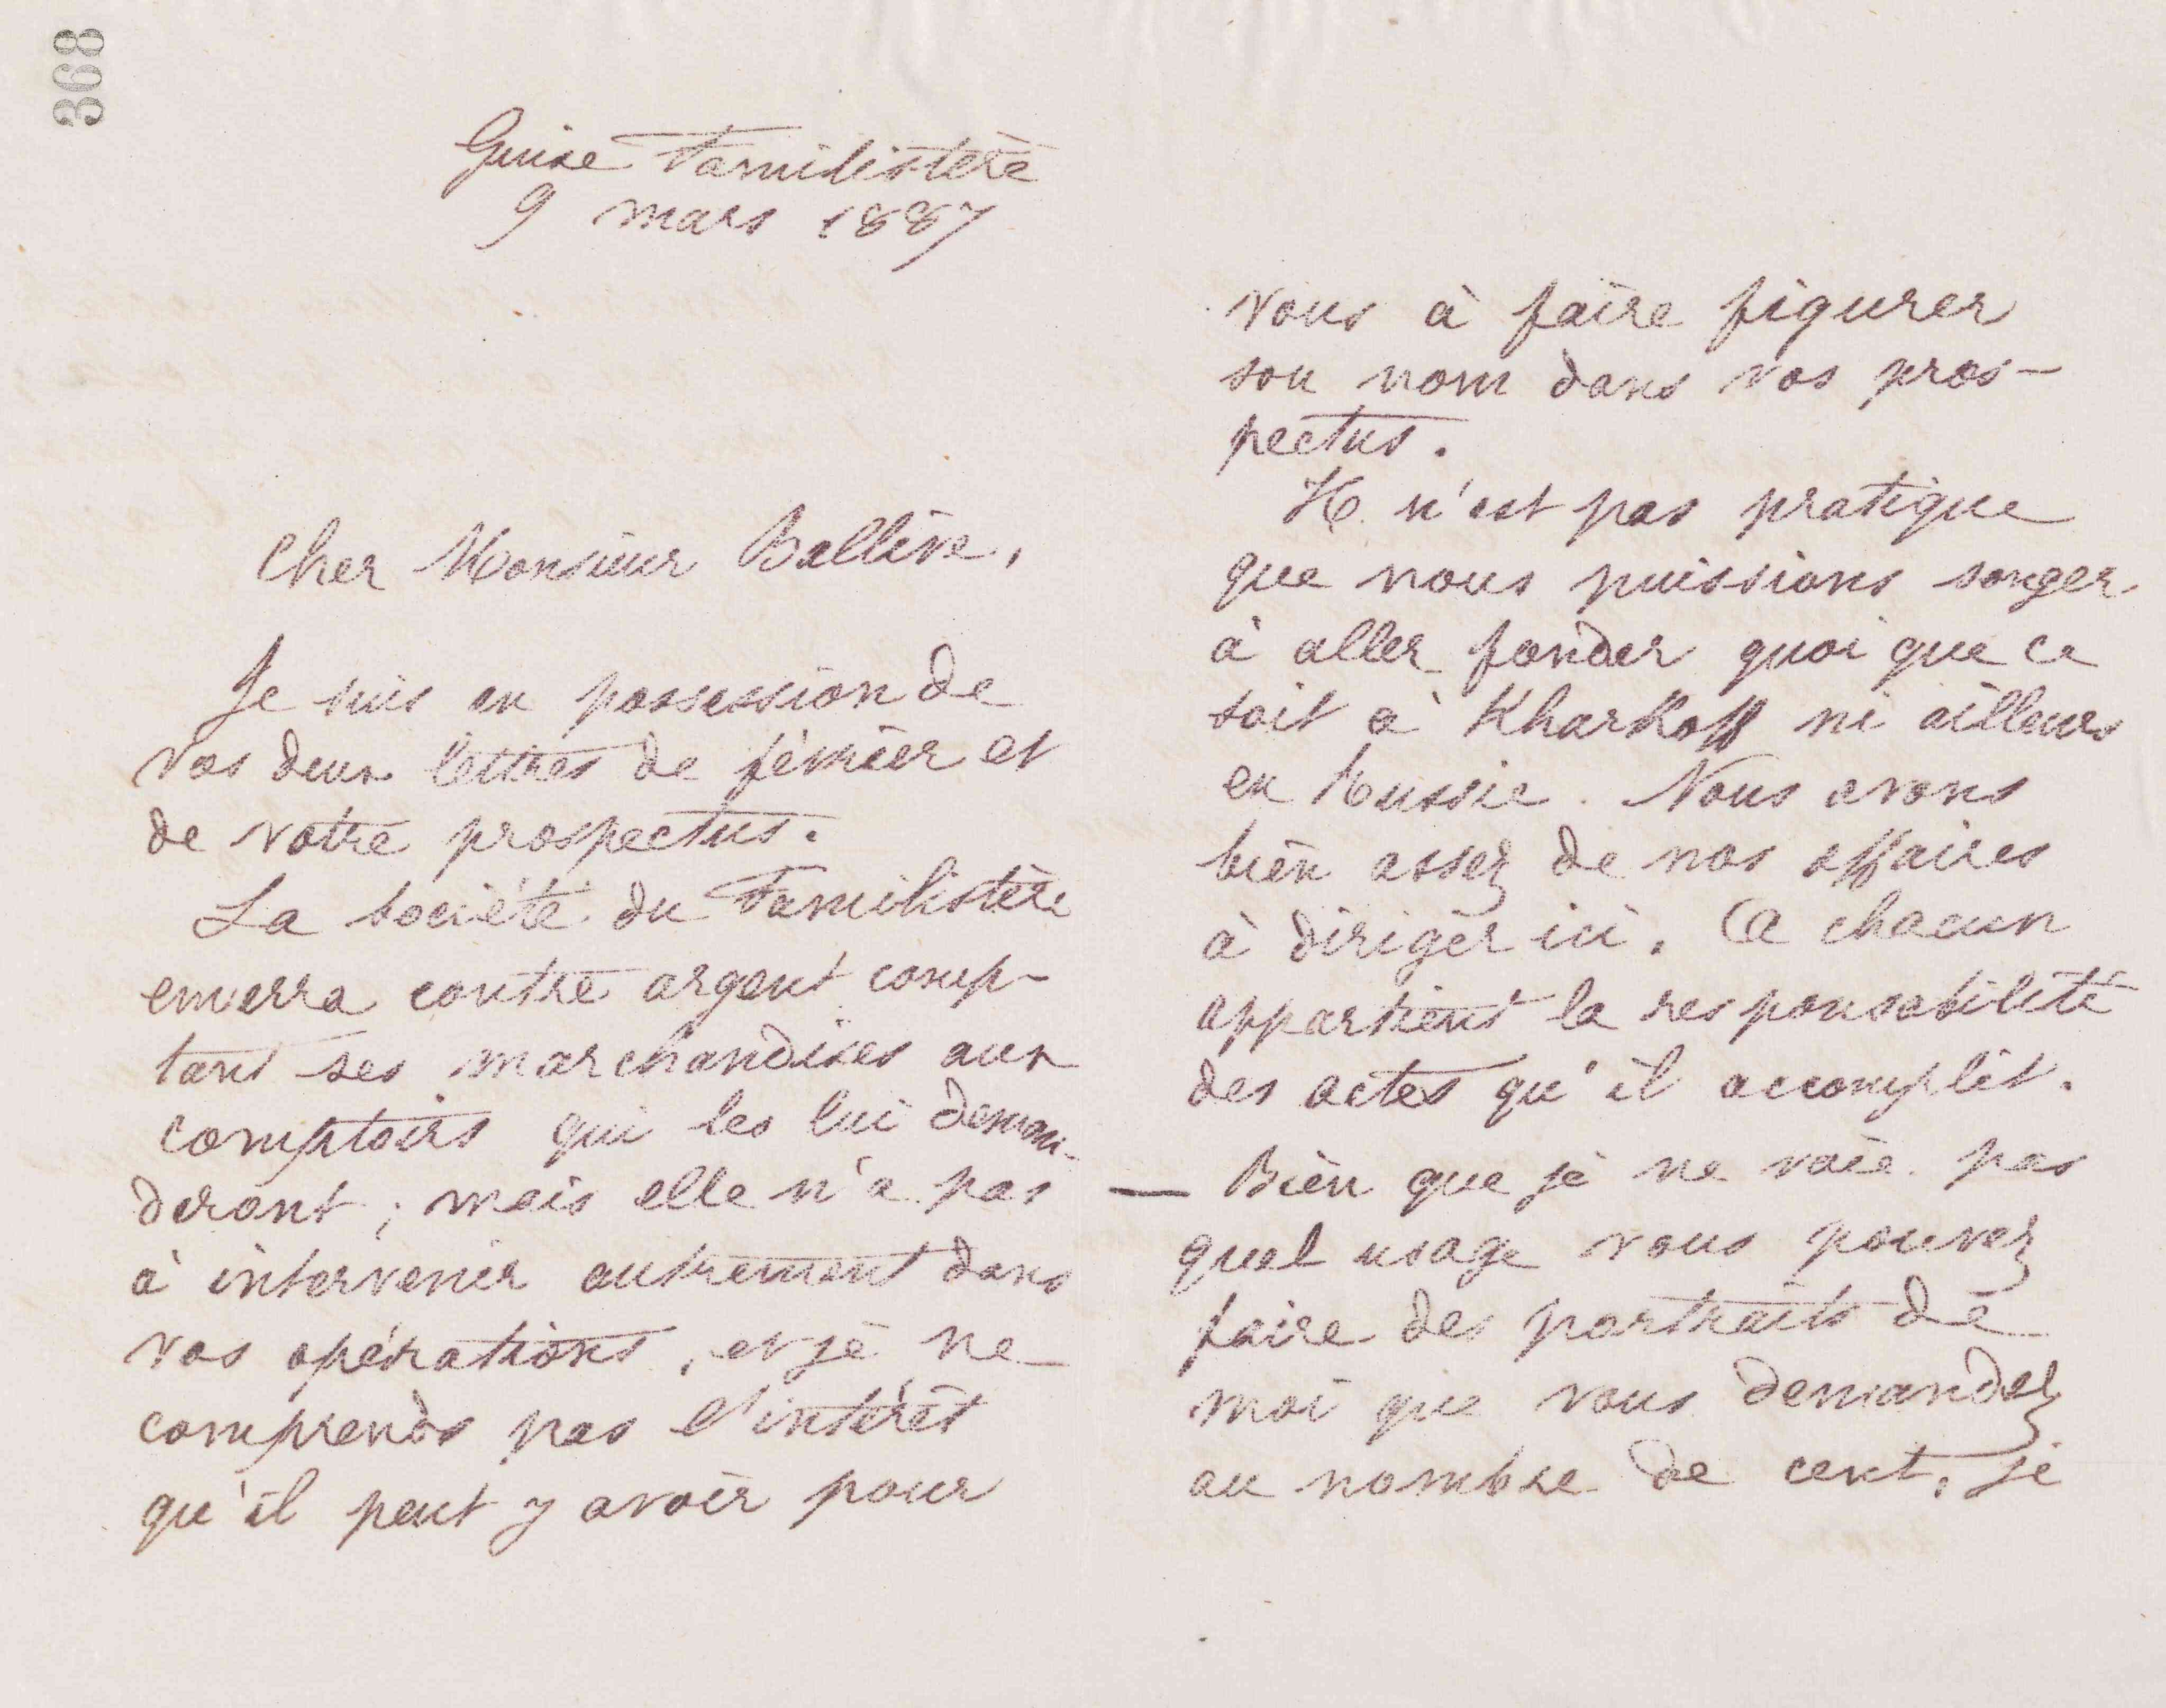 368
Guise Familistère
9 mars 1887
Cher Monsieur Ballère,
Je suis en possession de
vos deux lettres de février et
de votre prospectus.
La Société du Familistère
enverra contre argent comp-
tant ses marchandises aux
comptoirs qui les lui deman-
deront ; mais elle n'a pas
à intervenir autrement dans
vos opérations, et je ne
comprends pas l'intérêt
qu'il peut y avoir pour
vous à faire figurer
son nom dans vos pros-
pectus.
Il n'est pas pratique
que nous puissions songer
à aller fonder quoi que ce
soit à Kharkoff ni ailleurs
en Russie. Nous avons
bien assez de nos affaires
à diriger ici. A chacun
appartient la responsabilité
des actes qu'il accomplit.
— Bien que je ne voie pas
quel usage vous pouvez
faire des portraits de
moi que vous demandez
au nombre de cent, je